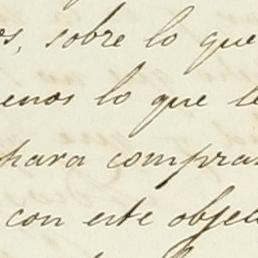 os, sobre lo que
enos lo que le
para comprar
con este objec